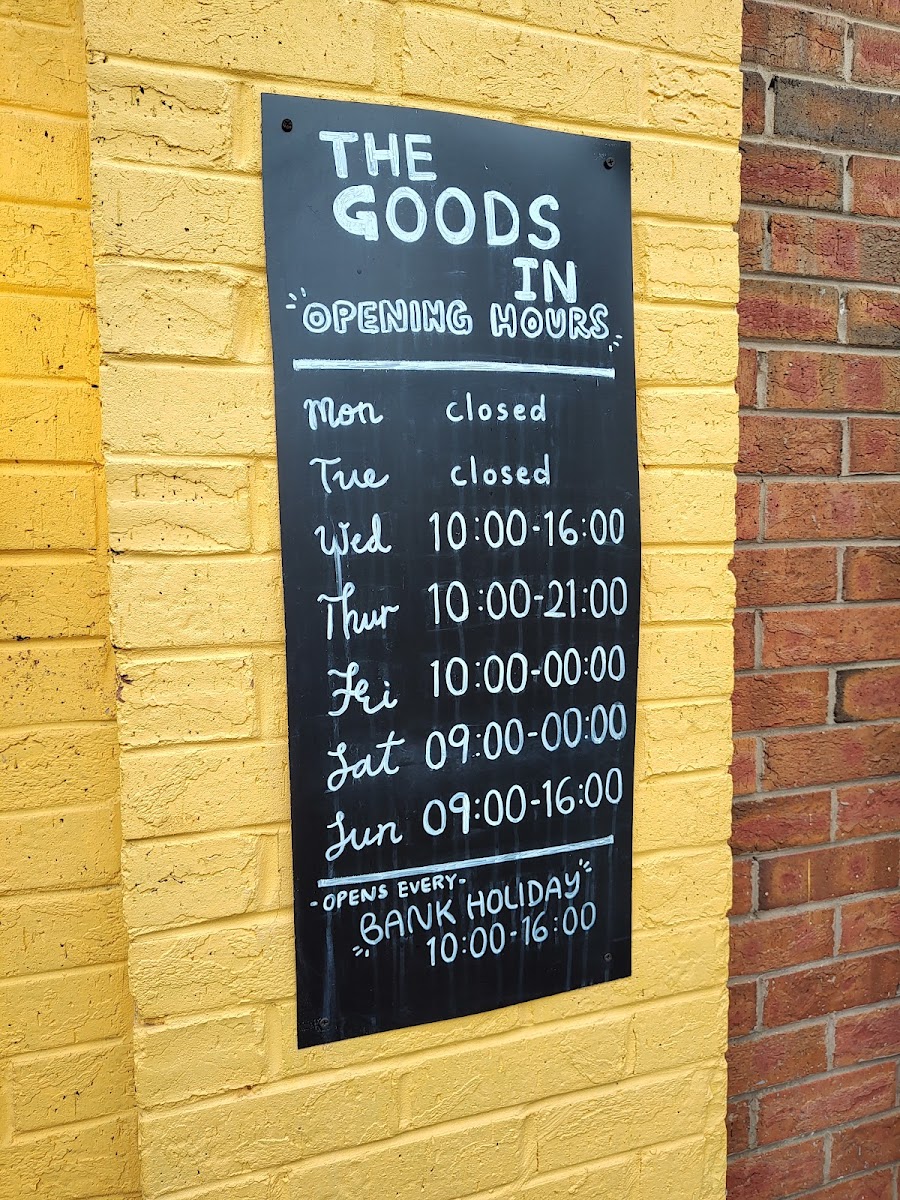 THE
GOODS
IN
OPENING HOURS
Mon closed
Tue closed
Wed 10:00-16:00
Thur 10:00-21:00
Fri 10:00-00:00
Sat 09:00-00:00
Sun 09:00-16:00
-OPENS EVERY-
BANK HOLIDAY
10:00-16:00